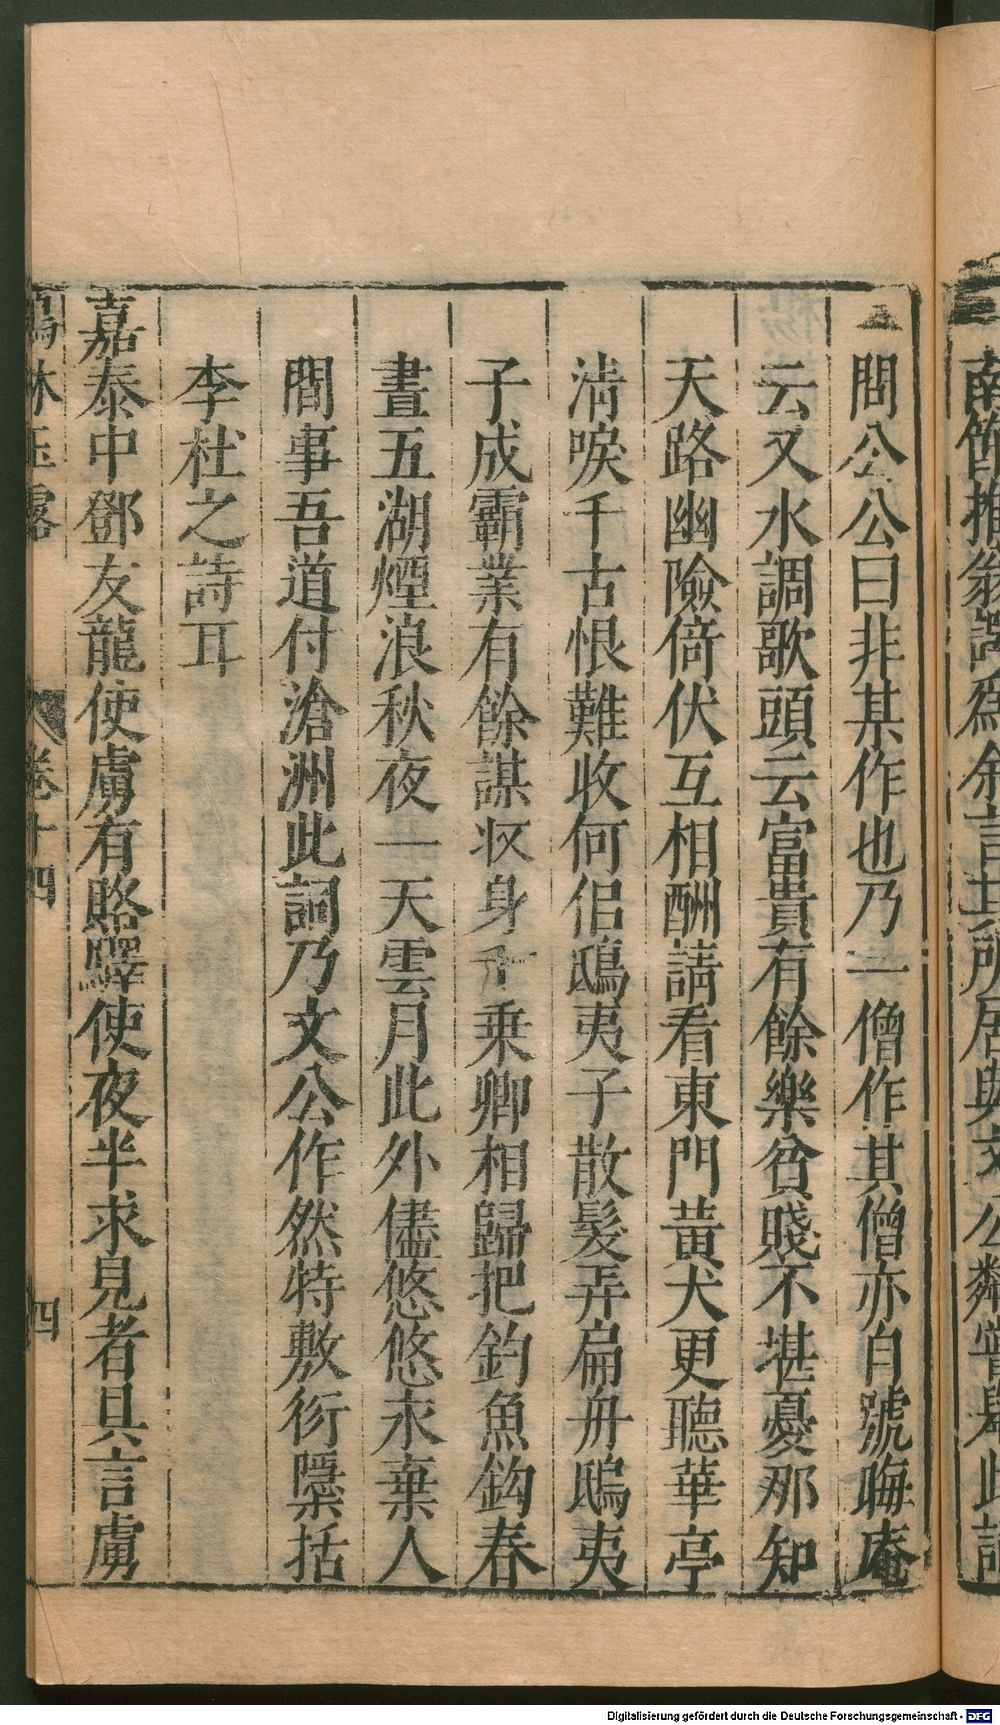 南舘推翁誤爲余言其所居與文公鄰嘗舉此詞
問公公曰非某作也乃一僧作其僧亦自號晦庵
云又水調歌頭云富貴有餘樂貧賤不堪憂那知
天路幽險倚伏互相酬請看東門黃犬更聽華亭
淸唳千古恨難收何侣鴟夷子散髮弄扁舟鴟夷
子成霸業有餘謀收身千乗卿相歸把釣魚鈎春
晝五湖煙浪秋夜一天雲月此外儘悠悠永棄人
間事吾道付滄洲此詞乃文公作然特敷衍隱括
李杜之詩耳
嘉泰中鄧友龍使虜有賂驛使夜半求見者具言虜
林玉露 卷十四 四
Digitalisierung gefördert durch die Deutsche Forschungsgemeinschaft - DFG